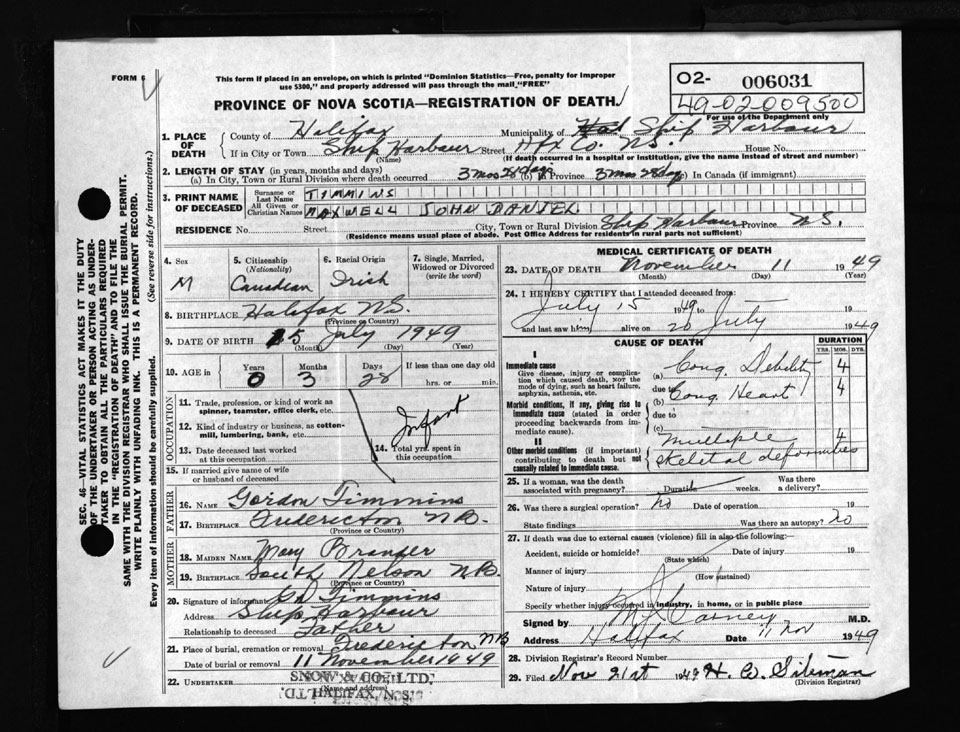 FORM 6
This form if placed in an envelope, on which is printed "Dominion Statistics—Free, penalty for improper
use $300," and properly addressed will pass through the mail "FREE"
PROVINCE OF NOVA SCOTIA—REGISTRATION OF DEATH
O2- 006031
49-02-009500
For use of the Department only
SEC. 46—VITAL STATISTICS ACT MAKES IT THE DUTY
OF THE UNDERTAKER OR PERSON ACTING AS UNDER-
TAKER TO OBTAIN ALL THE PARTICULARS REQUIRED
IN THE "REGISTRATION OF DEATH" AND TO FILE THE
SAME WITH THE DIVISION REGISTRAR WHO SHALL ISSUE THE BURIAL PERMIT.
WRITE PLAINLY WITH UNFADING INK. THIS IS A PERMANENT RECORD.
Every item of information should be carefully supplied. (See reverse side for instructions.)
1. PLACE OF DEATH
County of Halifax Municipality of Ship Harbour
If in City or Town Ship Harbour Street Hfx Co. N.S. House No.
(Name) (If death occurred in a hospital or institution, give the name instead of street and number)
2. LENGTH OF STAY (in years, months and days)
(a) In City, Town or Rural Division where death occurred 3 mos 28 days (b) in Province 3 mos 28 days In Canada (if immigrant)
3. PRINT NAME OF DECEASED
Surname or Last Name TIMMINS
All Given or Christian Names MAXWELL JOHN DANIEL
RESIDENCE No. Street City, Town or Rural Division Ship Harbour Province N.S.
(Residence means usual place of abode. Post Office Address for residents in rural parts not sufficient)
4. Sex M
5. Citizenship (Nationality) Canadian
6. Racial Origin Irish
7. Single, Married, Widowed or Divorced (write the word)
8. BIRTHPLACE Halifax N.S.
(Province or Country)
9. DATE OF BIRTH 15 July 1949
(Month) (Day) (Year)
10. AGE in Years 0 Months 3 Days 28 If less than one day
hrs. or min.
OCCUPATION
11. Trade, profession, or kind of work as
spinner, teamster, office clerk, etc.
12. Kind of industry or business, as cotton-
mill, lumbering, bank, etc.
Infant
13. Date deceased last worked
at this occupation
14. Total yrs. spent in
this occupation
15. If married give name of wife
or husband of deceased
FATHER
16. NAME Gordon Timmins
17. BIRTHPLACE Fredericton N.B.
(Province or Country)
MOTHER
18. MAIDEN NAME Mary
19. BIRTHPLACE South Nelson N.B.
(Province or Country)
20. Signature of informant Timmins
Address Ship Harbour
Relationship to deceased Father
21. Place of burial, cremation or removal Fredericton NB
Date of burial or removal 11 November 1949
22. UNDERTAKER SNOW & CO., LTD.
(Name and address)
HALIFAX, N.S.
MEDICAL CERTIFICATE OF DEATH
23. DATE OF DEATH November 11 1949
(Month) (Day) (Year)
24. I HEREBY CERTIFY that I attended deceased from:
July 15 1949 to 19
and last saw him alive on 20 July 1949
CAUSE OF DEATH
DURATION
YRS. MOS. DYS.
I
Immediate cause
Give disease, injury or compli-
cation which caused death, not the
mode of dying, such as heart failure,
asphyxia, asthenia, etc.
(a) Cong. Debility 4
due to
(b) Cong. Heart 4
Morbid conditions, if any, giving rise to
immediate cause (stated in order
proceeding backwards from im-
mediate cause).
due to
(c)
II
Other morbid conditions (if important)
contributing to death but not
causally related to immediate cause.
multiple 4
skeletal deformities
25. If a woman, was the death
associated with pregnancy? Duration weeks. Was there
a delivery?
26. Was there a surgical operation? No Date of operation 19
State findings Was there an autopsy? No
27. If death was due to external causes (violence) fill in also the following:—
Accident, suicide or homicide? Date of injury 19
(State which)
Manner of injury
(How sustained)
Nature of injury
Specify whether injury occurred in industry, in home, or in public place
Signed by Carney M.D.
Address Halifax Date 11 Nov 1949
28. Division Registrar's Record Number
29. Filed Nov 21st 1949 H. Siteman
(Division Registrar)